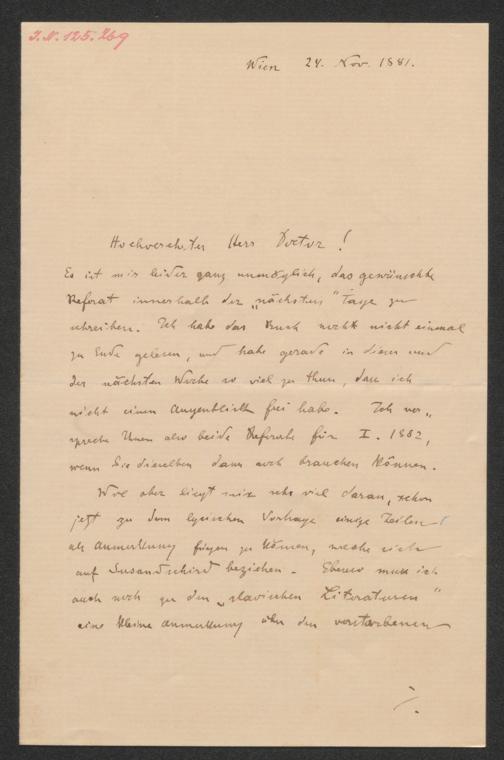 I.N. 125.269
Wien 24. Nov. 1881.
Hochverehrter Herr Doctor!
Es ist mir leider ganz unmöglich, das gewünschte
Referat innerhalb der „nächsten" Tage zu
schreiben. Ich habe das Buch noch nicht einmal
zu Ende gelesen, und habe gerade in dieser und
der nächsten Woche so viel zu thun, dass ich
nicht einen Augenblick frei habe. Ich ver„
spreche Ihnen also beide Referate für I. 1882,
wenn Sie dieselben dann noch brauchen können.
Wol aber liegt mir sehr viel daran, schon
jetzt zu dem lyrischen Vortrage einige Zeilen
als Anmerkung fügen zu können, welche sich
auf Susandschird beziehen. Ebenso muss ich
auch noch zu den „slavischen Literaturen"
eine kleine Anmerkung über den verstorbenen
./.